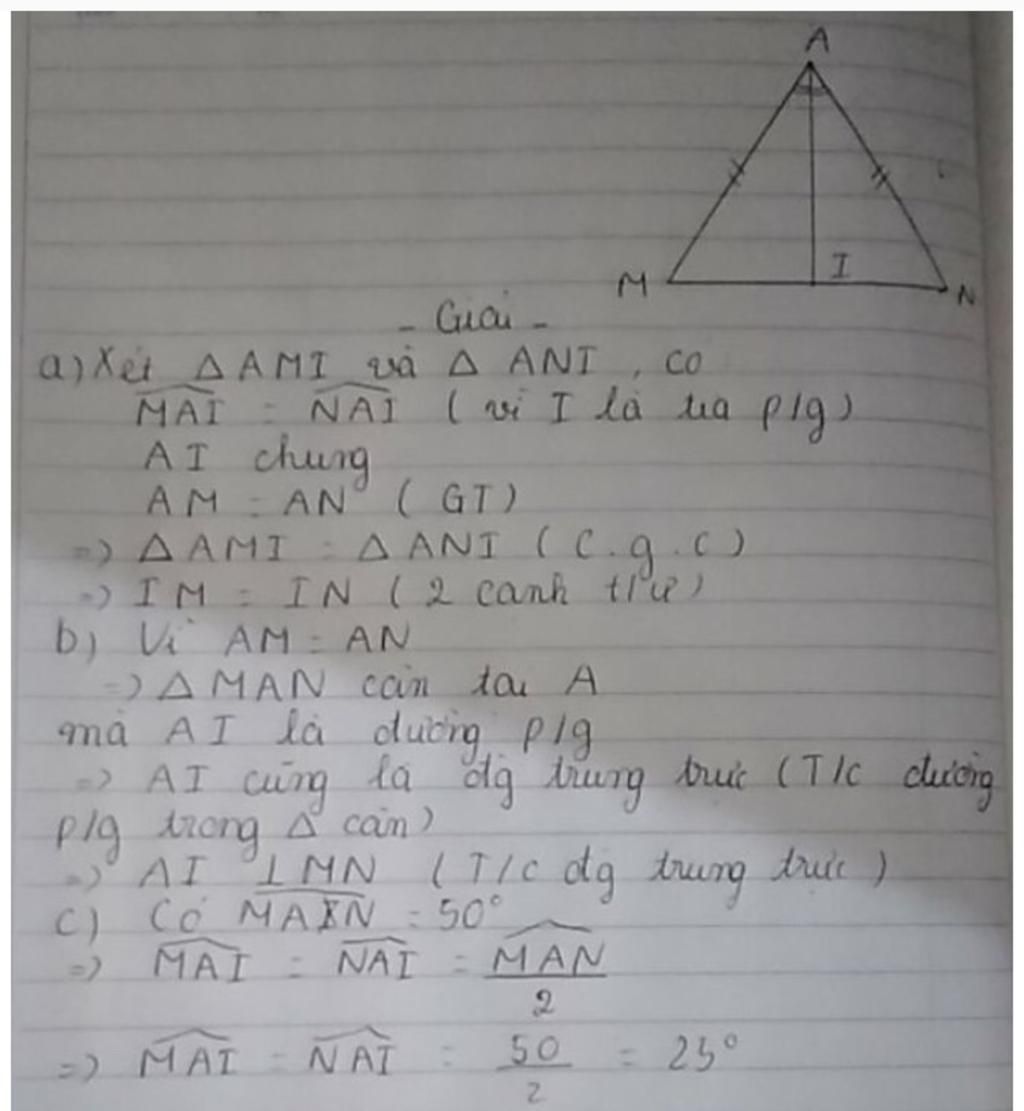 A
M
I
N
- Giải -
a) Xét Δ AMI và Δ ANI, có
MAI = NAI ( vì I là tia p/g)
AI chung
AM = AN ( GT)
=) Δ AMI = Δ ANI ( c.g.c)
=) IM = IN ( 2 cạnh t/ư)
b) Vì AM = AN
=) Δ MAN cân tại A
mà AI là đường p/g
=> AI cũng là đg trung trực (T/c đường
p/g trong Δ cân)
=) AI ⊥ MN ( T/c đg trung trực )
c) Có MAN = 50°
=> MAI = NAI = MAN/2
=) MAI = NAI = 50/2 = 25°